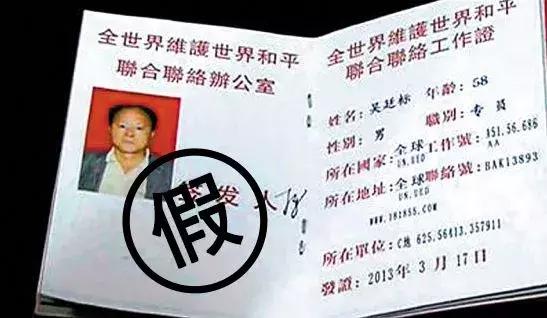 全世界維護世界和平
聯合聯絡辦公室
签发人
假
全世界維護世界和平
聯合聯絡工作證
姓名:吴廷标 年齡:58
性別:男 職別:专員
所在國家:全球工作號:351.56.686
UN.UED AA
所在地址:全球聯絡號:BAK13893
UN.UED
WWW.181855.COM
所在單位:C地 625.56413.357911
發證:2013年3月17日